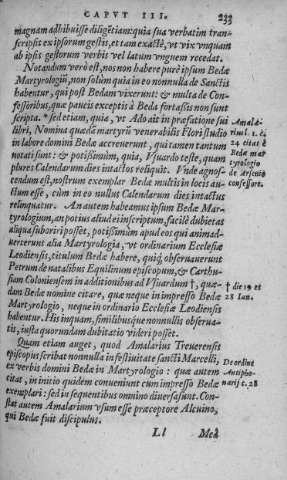 CAPVT III.
233
magnam adhibuisse diligētiam: quia sua verbatim tran-
scripsit ex ipsorum gestis, et tam exactè, vt vix vnquam
ab ipsis gestorum verbis vel latum vnguem recedat.
Notandum verò est, nos non habere purè ipsum Bedæ
Martyrologiū, non solum quia in eo nonnulla de Sanctis
habentur, qui post Bedam vixerunt: & multa de Con-
fessoribus, quæ paucis exceptis à Beda fortassis non sunt
scripta. * sed etiam, quia, vt Ado ait in præfatione sui
libri, Nomina quædā martyrū venerabilis Flori studio
in labore domini Bedæ accreuerunt, qui tamen tantum
notati sunt: & potissimùm, quia, Vsuardo teste, quam
plures Calendarum dies intactos reliquit. Vnde agnos-
cendum est, nostrum exemplar Bedæ multis in locis au-
ctum esse, cùm in eo nullus Calendarum dies intactus
relinquatur. An autem habeamus ipsum Bedæ Mar-
tyrologium, an potius aliud ei inscriptum, facile dubietas
aliqua suboriri posset, potissimùm apud eos qui animad-
uerterunt alia Martyrologia, vt ordinarium Ecclesiæ
Leodiensis, titulum Bedæ habere, quiq́; obseruauerunt
Petrum de natalibus Equilinum episcopum, & Carthu-
sium Coloniensem in additionibus ad Vsuardum †, quæ-
dam Bedæ nomine citare, quæ neque in impresso Bedæ
Martyrologio, neque in ordinario Ecclesiæ Leodiensis
habentur. His inquam, similibusq́ue nonnullis obserua-
tis, iusta quorundam dubitatio videri posset.
Quam etiam auget, quod Amalarius Treuerensis
episcopus scribat nonnulla in festiuitate sancti Marcelli,
ex verbis domini Bedæ in Martyrologio: quæ autem
citat, in initio quidem conueniunt cum impresso Bedæ
exemplari: sed in sequentibus omnino diuersa sunt. Con-
stat autem Amalarium vsum esse præceptore Alcuino,
qui Bedæ fuit discipulus.
Ll
Med
* Amala-
24 citat è
Bedæ mar
tyrologio
de Arsenio
confessore.
† die 19 et
28 Ian.
De ordine
Antipho-
narij c. 28